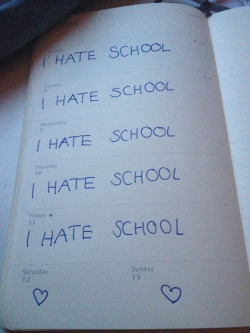 I HATE SCHOOL
I HATE SCHOOL
Wednesday
9
I HATE SCHOOL
Thursday
10
I HATE SCHOOL
Friday
11
I HATE SCHOOL
Saturday
12
Sunday
13